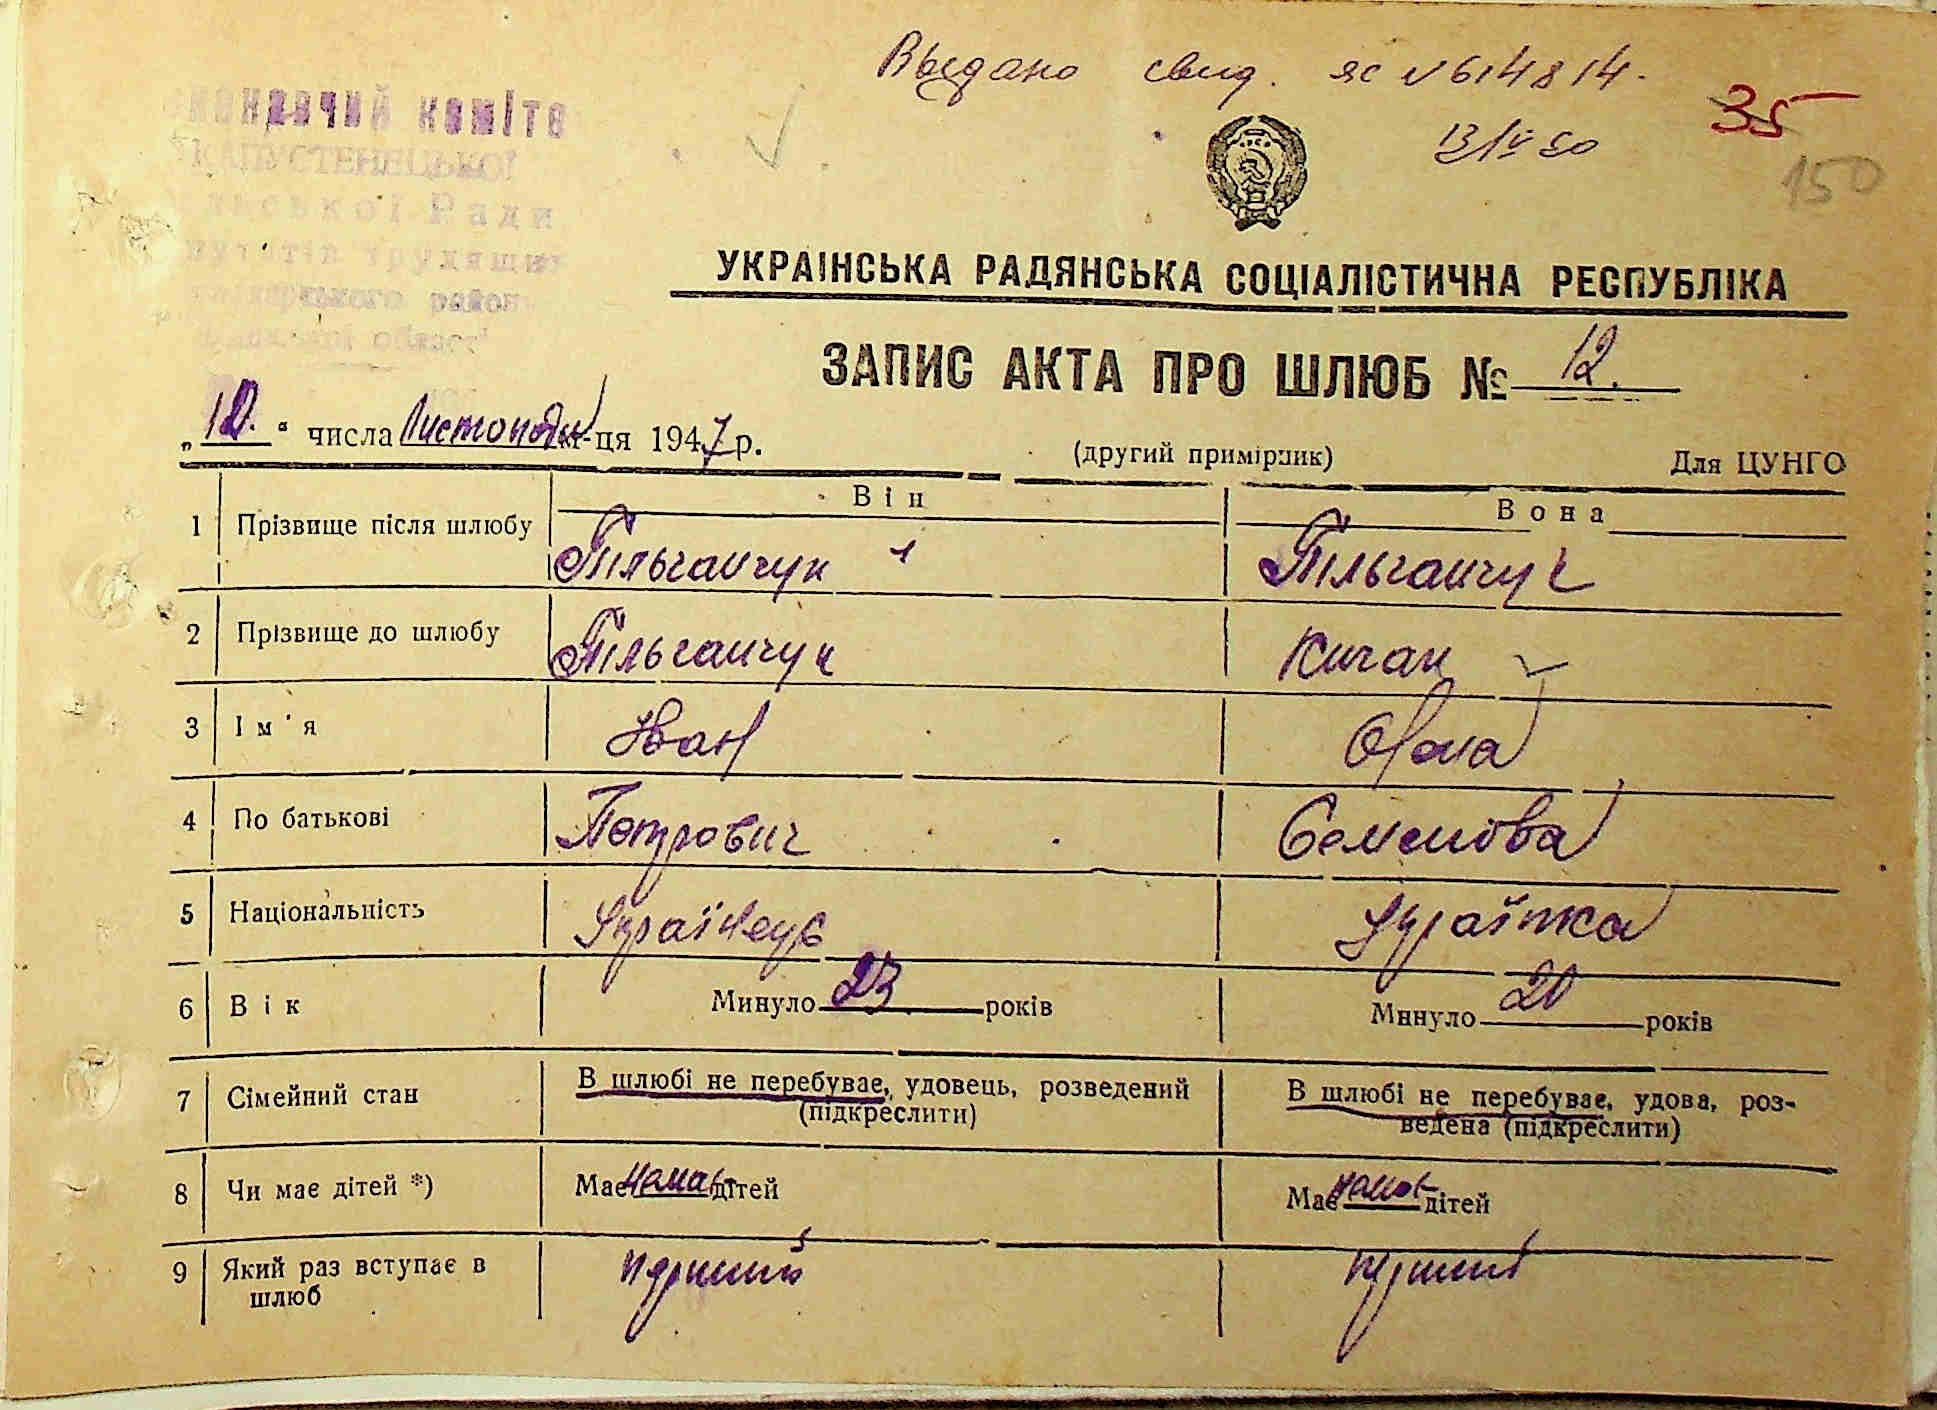 Выдано свид. яс №614814.
13/IV 50
35
150
комітe
КАПУСТЕНЕЦЬКОЇ
Ради
трудящих
район
област
УКРАЇНСЬКА РАДЯНСЬКА СОЦІАЛІСТИЧНА РЕСПУБЛІКА
ЗАПИС АКТА ПРО ШЛЮБ № 12.
„10." числа Листопада м-ця 1947 р.
(другий примірник) Для ЦУНГО
Він Вона
1 Прізвище після шлюбу Пільганчук Пільганчук
2 Прізвище до шлюбу Пільганчук Кичак
3 Ім'я Іван Олена
4 По батькові Петрович Семенова
5 Національність Українець Українка
6 Вік Минуло 23 років Минуло 20 років
7 Сімейний стан В шлюбі не перебуває, удовець, розведений В шлюбі не перебуває, удова, роз-
(підкреслити) ведена (підкреслити)
8 Чи має дітей *) Має немає дітей Має немає дітей
9 Який раз вступає в перший перший
шлюб